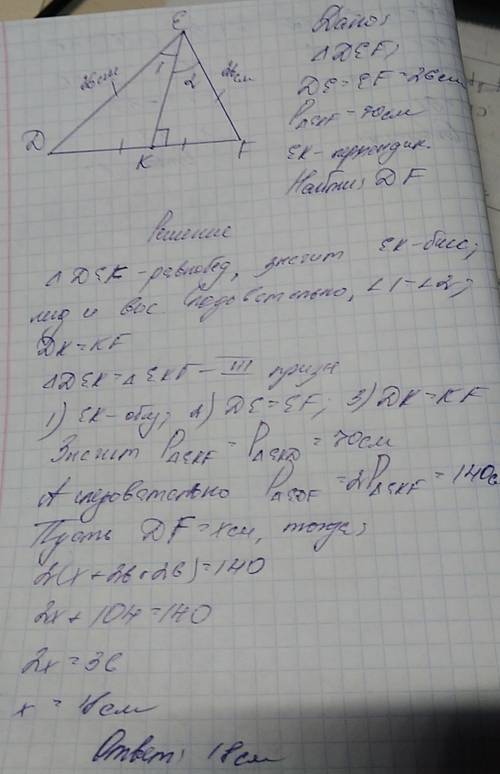 Дано:
△DEF;
DE=EF=26см
P△EKF=70см
EK-перпендик.
Найти: DF
E
26см
1
2
26см
D
K
F
Решение
△DEF-равнобед, значит EK-бисс;
мед и выс следовательно, ∠1=∠2;
DK=KF
△DEK=△EKF-III призн
1) EK-общ; 2) DE=EF; 3) DK=KF
Значит P△EKF=P△EKD=70см
А следовательно P△EDF=2P△EKF=140см
Пусть DF=xсм, тогда:
2(x+26+26)=140
2x+104=140
2x=36
x=18см
Ответ: 18см